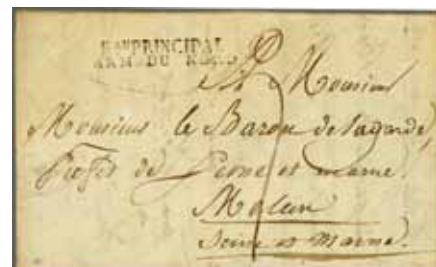 Bau PRINCIPAL
ARM. DU NORD
A Monsieur
Monsieur le Baron de lagarde,
Prefet de Seine et marne.
Melun
Seine et Marne.